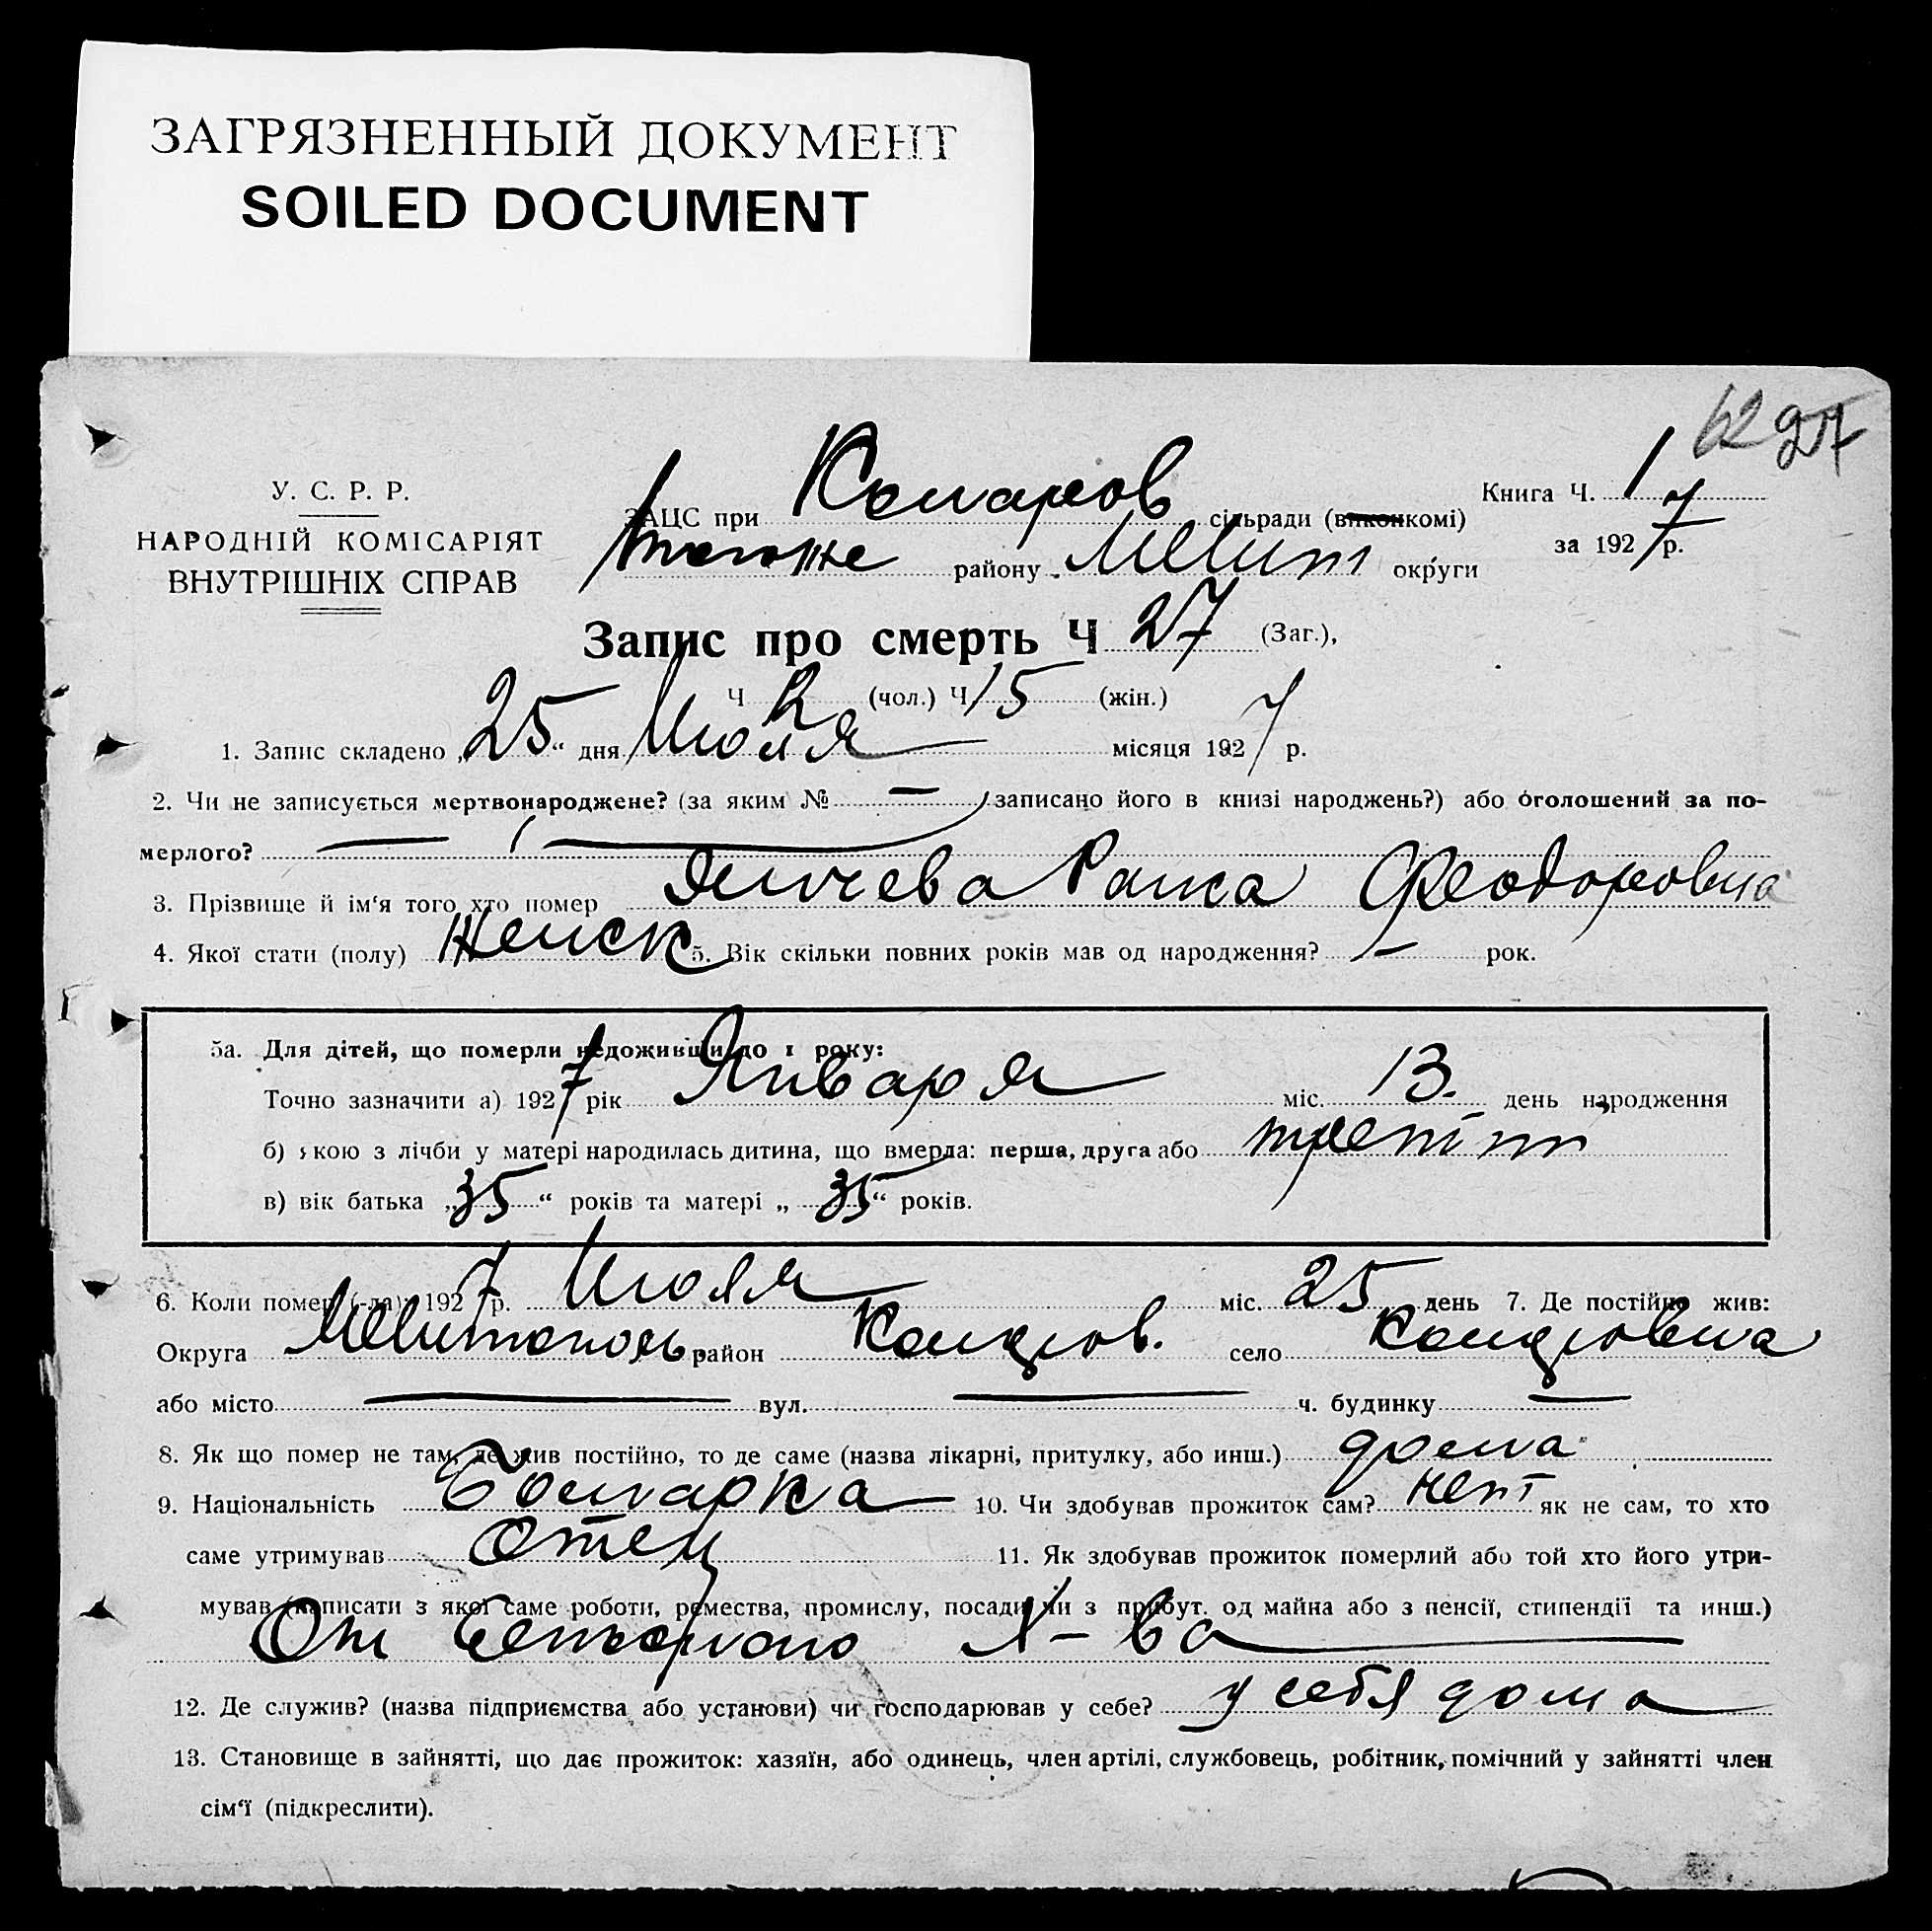 ЗАГРЯЗНЕННЫЙ ДОКУМЕНТ
SOILED DOCUMENT
62 27
У. С. Р. Р.
НАРОДНІЙ КОМІСАРІЯТ
ВНУТРІШНІХ СПРАВ
ЗАЦС при сільради (виконкомі)
Книга Ч. 1
тогоже району Мелит округи
за 1927 р.
Запис про смерть Ч 27 (Заг.),
Ч 12 (чол.) Ч 15 (жін.)
1. Запис складено „25“ дня Июля місяця 1927 р.
2. Чи не записується мертвонароджене? (за яким № — записано його в книзі народжень?) або оголошений за по-
мерлого? —
3. Прізвище й ім‘я того хто помер Феодоровна
4. Якої стати (полу) Женск 5. Вік скільки повних років мав од народження? — рок.
5а. Для дітей, що померли недоживши до 1 року:
Точно зазначити а) 1927 рік Января міс. 13. день народження
б) якою з лічби у матері народилась дитина, що вмерла: перша, друга або
в) вік батька „35“ років та матері „35“ років.
6. Коли помер (-ла): 1927 р. Июля міс. 25 день 7. Де постійно жив:
Округа Мелитополь. район село
або місто — вул. — ч. будинку —
8. Як що помер не там, де жив постійно, то де саме (назва лікарні, притулку, або инш.) дома
9. Національність Болгарка 10. Чи здобував прожиток сам? нет як не сам, то хто
саме утримував Отец 11. Як здобував прожиток померлий або той хто його утри-
мував (написати з якої саме роботи, ремества, промислу, посади чи з прибут. од майна або з пенсії, стипендії та инш.)
От Сельского Х-ва
12. Де служив? (назва підприємства або установи) чи господарював у себе? у себя дома
13. Становище в зайнятті, що дає прожиток: хазяїн, або одинець, член артілі, службовець, робітник, помічний у зайнятті член
сім‘ї (підкреслити).